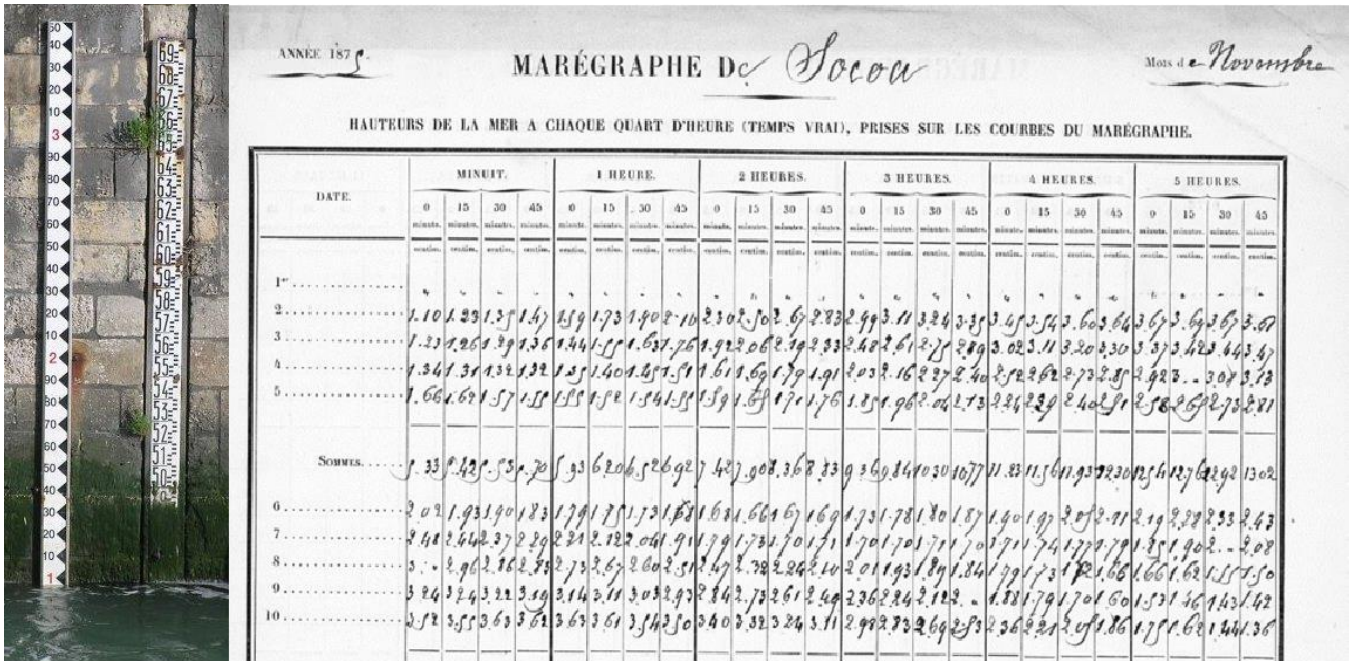 50
40
30
20
10
3
90
80
70
60
50
40
30
20
10
2
90
80
70
60
50
40
30
20
10
1
69
68
67
66
65
64
63
62
61
60
59
58
57
56
55
54
53
52
51
50
ANNÉE 1875.
MARÉGRAPHE De Socoa
Mois de Novembre
HAUTEURS DE LA MER A CHAQUE QUART D'HEURE (TEMPS VRAI), PRISES SUR LES COURBES DU MARÉGRAPHE.
DATE. MINUIT. 1 HEURE. 2 HEURES. 3 HEURES. 4 HEURES. 5 HEURES.
0 15 30 45 0 15 30 45 0 15 30 45 0 15 30 45 0 15 30 45 0 15 30 45
minute. minutes. minutes. minutes. minute. minutes. minutes. minutes. minute. minutes. minutes. minutes. minute. minutes. minutes. minutes. minute. minutes. minutes. minutes. minute. minutes. minutes. minutes.
centim. centim. centim. centim. centim. centim. centim. centim. centim. centim. centim. centim. centim. centim. centim. centim. centim. centim. centim. centim. centim. centim. centim. centim.
1er " " " " " " " " " " " " " " " " " " " " " " " "
2 1.10 1.23 1.35 1.47 1.59 1.73 1.90 2.10 2.30 2.50 2.67 2.83 2.99 3.11 3.24 3.35 3.45 3.54 3.60 3.64 3.67 3.69 3.67
3 1.23 1.26 1.29 1.36 1.44 1.55 1.63 1.76 1.92 2.06 2.19 2.33 2.48 2.61 2.75 2.89 3.02 3.11 3.20 3.30 3.37 3.42 3.44 3.47
4 1.34 1.31 1.32 1.32 1.35 1.40 1.45 1.51 1.61 1.69 1.79 1.91 2.03 2.16 2.27 2.40 2.52 2.62 2.73 2.85 2.92 3.-- 3.08 3.13
5 1.66 1.62 1.57 1.55 1.55 1.52 1.54 1.55 1.59 1.65 1.71 1.76 1.85 1.96 2.04 2.13 2.24 2.29 2.40 2.51 2.58 2.65 2.73 2.81
SOMMES 5.33 5.42 5.53 5.70 5.93 6.20 6.52 6.92 7.42 7.90 8.36 8.83 9.36 9.84 10.30 10.77 11.23 11.56 11.93 12.30 12.54 12.76 12.92 13.02
6 2.02 1.93 1.90 1.83 1.79 1.75 1.73 1.68 1.63 1.66 1.67 1.69 1.73 1.78 1.80 1.87 1.90 1.97 2.05 2.11 2.19 2.28 2.33 2.43
7 2.48 2.44 2.37 2.29 2.21 2.12 2.04 1.91 1.79 1.73 1.70 1.71 1.70 1.70 1.71 1.70 1.71 1.74 1.77 1.79 1.85 1.90 2.-- 2.08
8 3.-- 2.96 2.86 2.83 2.73 2.67 2.60 2.51 2.47 2.32 2.24 2.10 2.01 1.93 1.89 1.84 1.79 1.73 1.66 1.66 1.62 1.55 1.50
9 3.24 3.24 3.22 3.19 3.14 3.11 3.03 2.93 2.84 2.73 2.61 2.49 2.36 2.24 2.12 2.-- 1.88 1.79 1.70 1.60 1.53 1.46 1.43 1.42
10 3.52 3.55 3.63 3.62 3.63 3.61 3.54 3.50 3.40 3.32 3.24 3.11 2.98 2.83 2.69 2.53 2.36 2.21 2.05 1.86 1.75 1.62 1.44 1.36